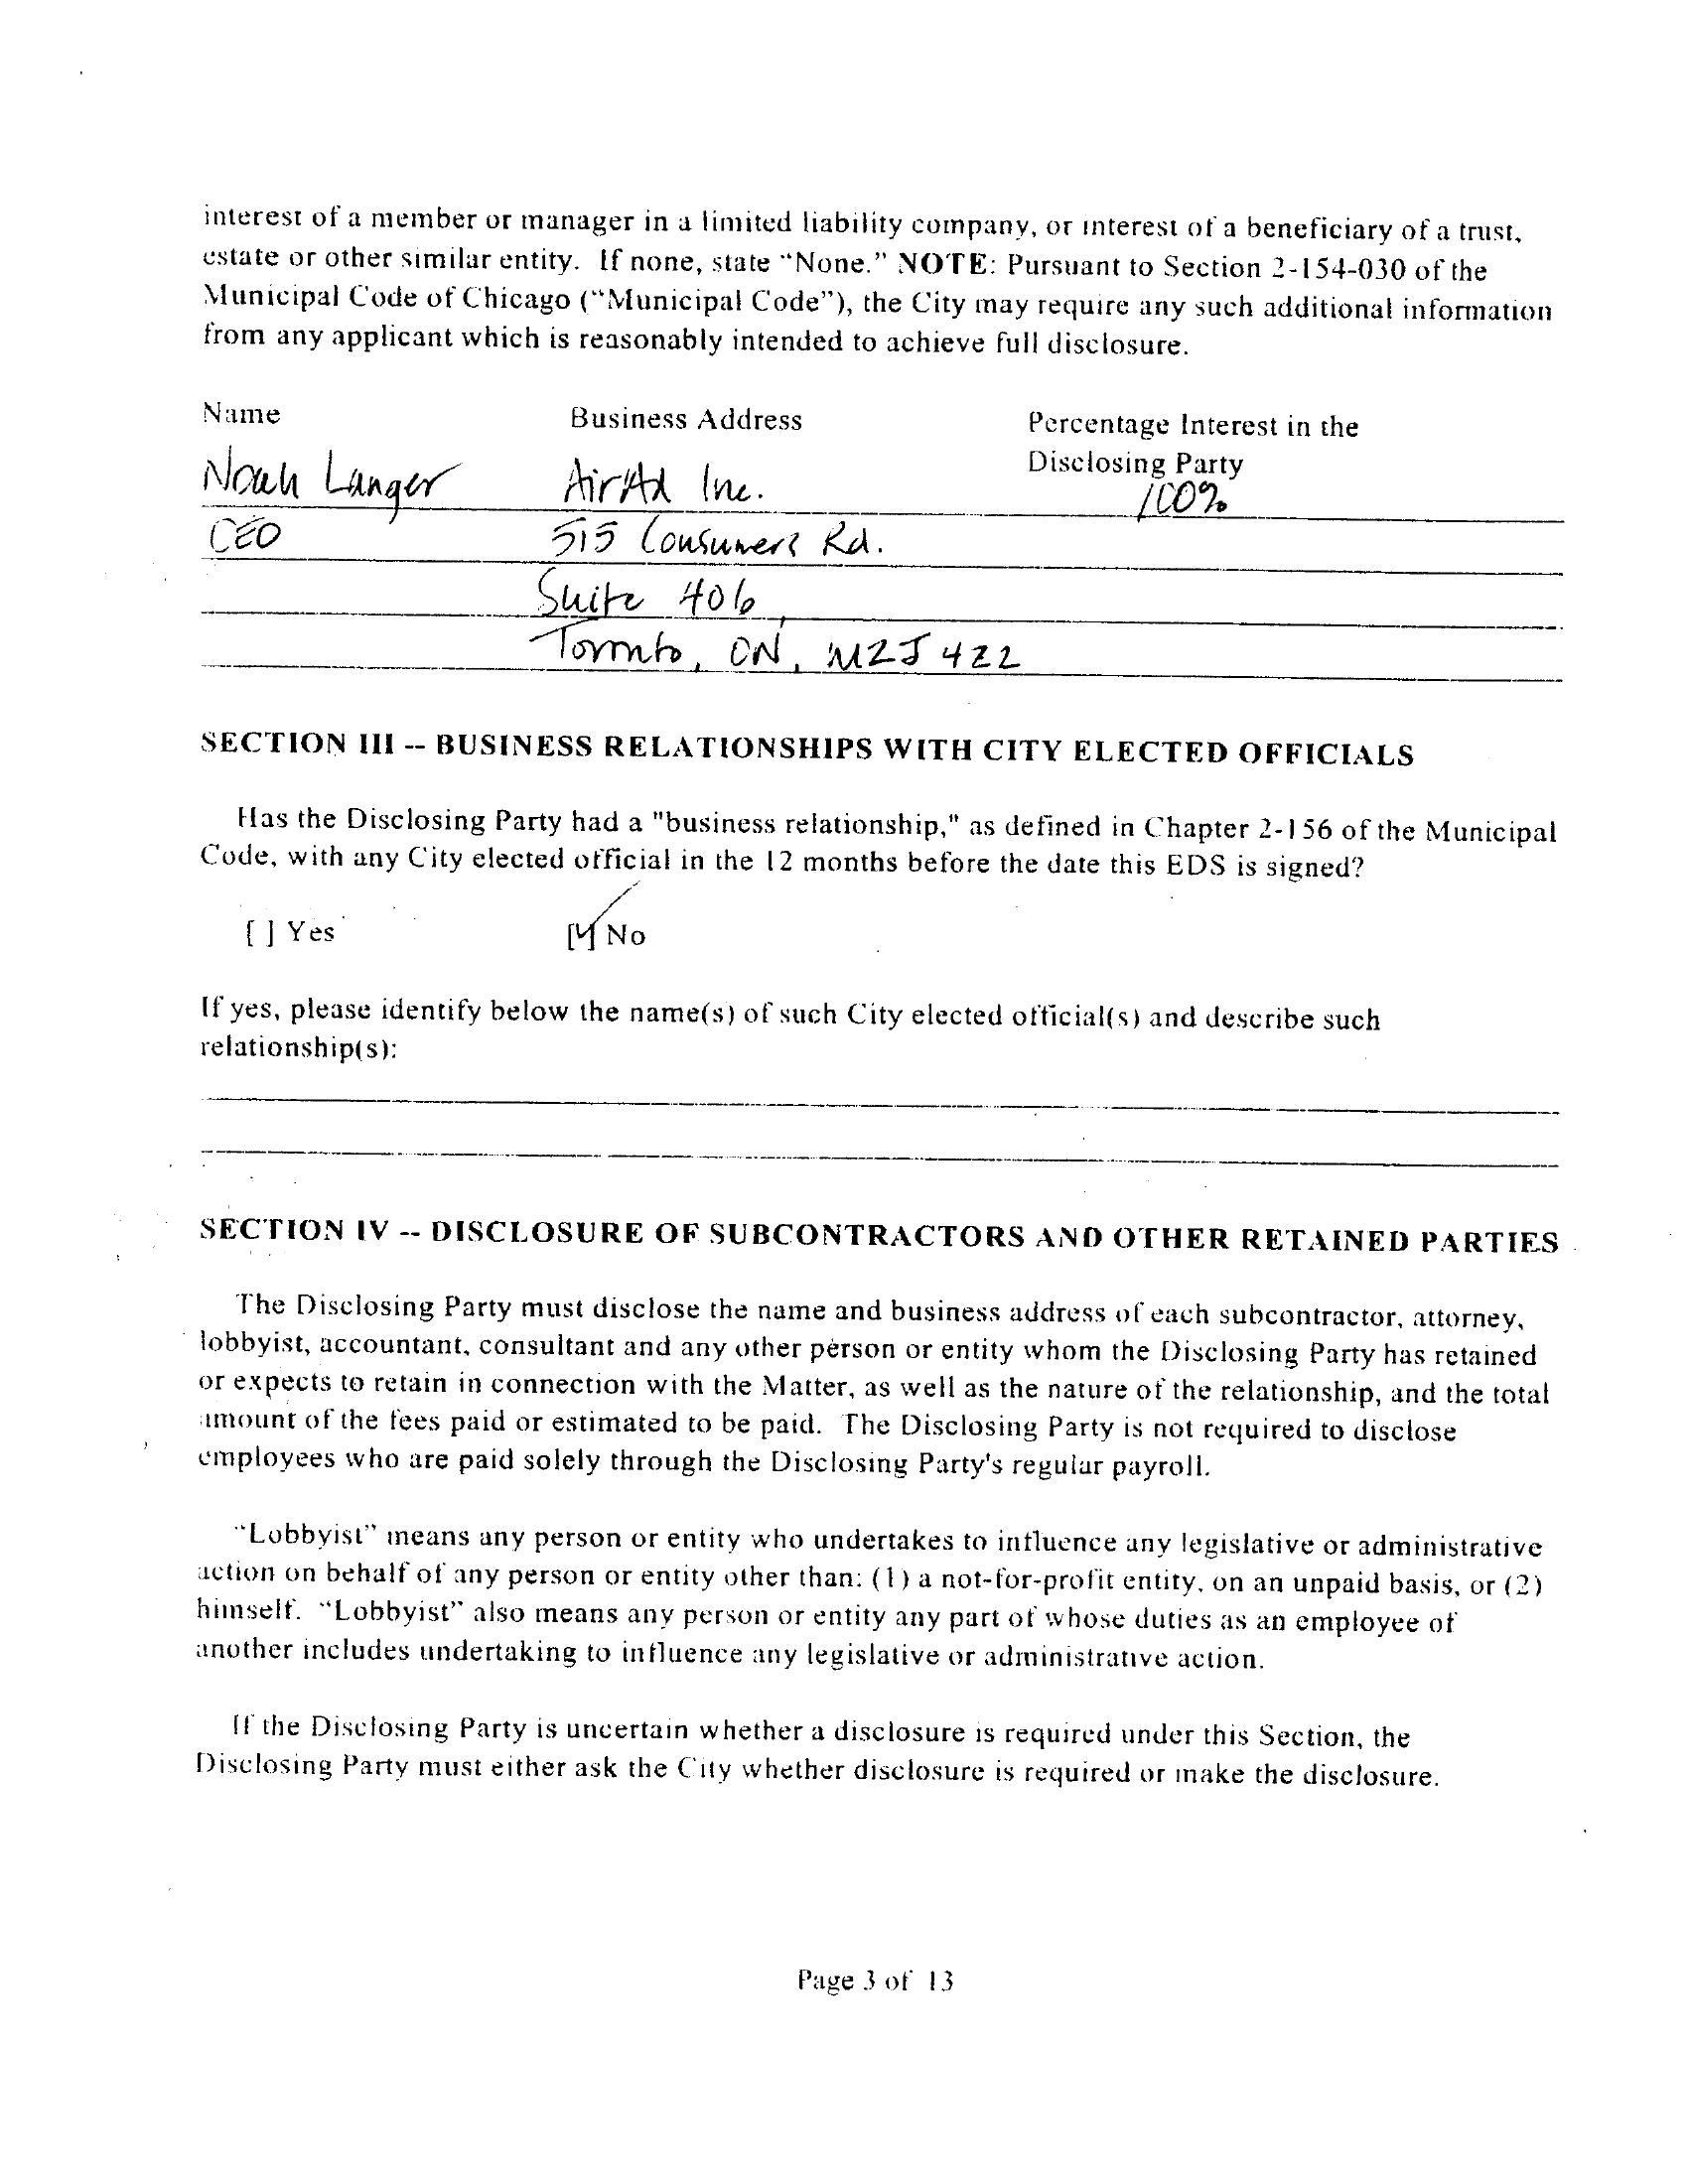 interest of a member or manager in a limited liability company, or interest of a beneficiary of a trust,
estate or other similar entity. If none, state “None.” NOTE: Pursuant to Section 2-154-030 of the
Municipal Code of Chicago (“Municipal Code”), the City may require any such additional information
from any applicant which is reasonably intended to achieve full disclosure.
Name Business Address Percentage Interest in the
Disclosing Party
Noah Langer AirAd Inc. 100%
CEO 515 Consumers Rd.
Suite 406,
Toronto, ON, M2J 4Z2
SECTION III -- BUSINESS RELATIONSHIPS WITH CITY ELECTED OFFICIALS
Has the Disclosing Party had a "business relationship," as defined in Chapter 2-156 of the Municipal
Code, with any City elected official in the 12 months before the date this EDS is signed?
[ ] Yes [✓] No
If yes, please identify below the name(s) of such City elected official(s) and describe such
relationship(s):
SECTION IV -- DISCLOSURE OF SUBCONTRACTORS AND OTHER RETAINED PARTIES
The Disclosing Party must disclose the name and business address of each subcontractor, attorney,
lobbyist, accountant, consultant and any other person or entity whom the Disclosing Party has retained
or expects to retain in connection with the Matter, as well as the nature of the relationship, and the total
amount of the fees paid or estimated to be paid. The Disclosing Party is not required to disclose
employees who are paid solely through the Disclosing Party's regular payroll.
“Lobbyist” means any person or entity who undertakes to influence any legislative or administrative
action on behalf of any person or entity other than: (1) a not-for-profit entity, on an unpaid basis, or (2)
himself. “Lobbyist” also means any person or entity any part of whose duties as an employee of
another includes undertaking to influence any legislative or administrative action.
If the Disclosing Party is uncertain whether a disclosure is required under this Section, the
Disclosing Party must either ask the City whether disclosure is required or make the disclosure.
Page 3 of 13